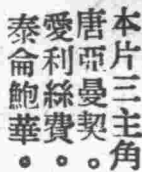 本片三主角
唐亞曼契。
愛利絲費。
泰侖鮑華。